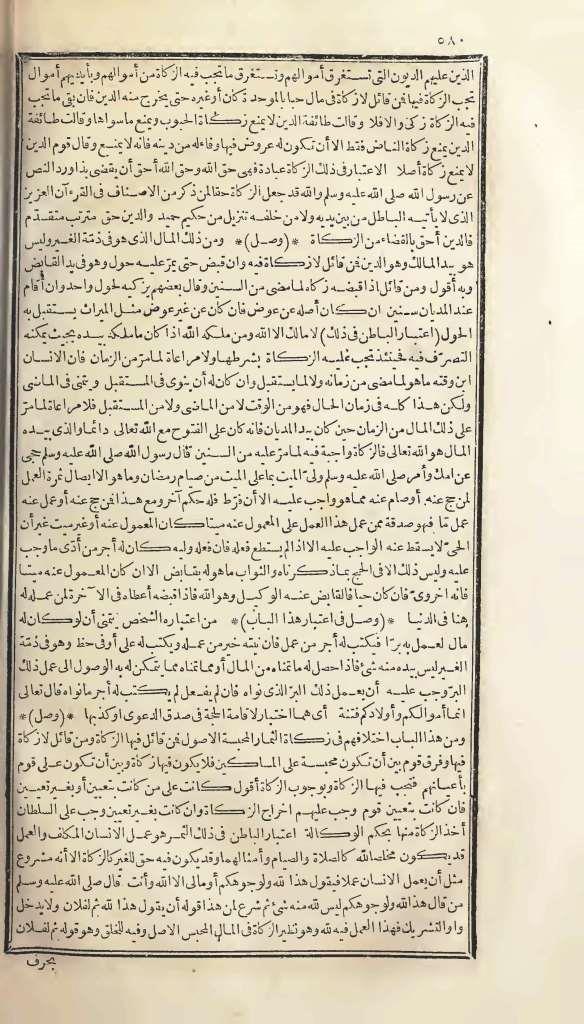 ٥٨٠
الذين عليهم الديون التي تستغرق أموالهم وتستغرق ما تجب فيه الزكاة من أموالهم وبأيديهم أموال
تجب الزكاة فيها فمن قائل لا زكاة في مال حبا بالموحدة كان أو غيره حتى يخرج منه الدين فان بقي ما تجب
فيه الزكاة زكى والافلا وقالت طائفة الدين لا يمنع زكاة الحبوب ويمنع ما سواها وقالت طائفة
الدين يمنع زكاة الناض فقط الا أن تكون له عروض فيها وفاءله من دينه فانه لا يمنع وقال قوم الدين
لا يمنع زكاة أصلا الاعتبار في ذلك الزكاة عبادة فهى حق الله وحق الله أحق أن يقضى بذا ورد النص
عن رسول الله صلى الله عليه وسلم والله قد جعل الزكاة حقا لمن ذكر من الاصناف في القرءآن العزيز
الذى لا يأتيه الباطل من بين يديه ولا من خلفه تنزيل من حكيم حميد والدين حق مترتب متقدم
فالدين أحق بالقضاء من الزكاة *(وصل)* ومن ذلك المال الذى هو في ذمة الغير وليس
هو بيد المالك وهو الدين فمن قائل لا زكاة فيه وان قبض حتى يمر عليه حول وهو في يد القابض
وبه أقول ومن قائل اذا قبضه زكاه لما مضى من السنين وقال بعضهم يزكيه لحول واحد وان أقام
عند المديان سنين ان كان أصله عن عوض فان كان عن غير عوض مثل الميراث يستقبل به
الحول (اعتبار الباطن في ذلك) لا مالك الا الله ومن ملكه الله اذا كان ما ملكه بيده بحيث يمكنه
التصرف فيه فحينئذ تجب عليه الزكاة بشرطها ولا مراعاة لما مر من الزمان فان الانسان
ابن وقته ما هو لما مضى من زمانه ولا لما يستقبل وان كان له أن ينوى في المستقبل ويتمنى في الماضى
ولكن هذا كله في زمان الحال فهو من الوقت لا من الماضى ولا من المستقبل فلا مراعاة لما مر
على ذلك المال من الزمان حين كان بيد المديان فانه كان على الفتوح مع الله تعالى دائما والذى بيده
المال هو الله تعالى فالزكاة واجبة فيه لما مر عليه من السنين قال رسول الله صلى الله عليه وسلم حجى
عن امك وأمر صلى الله عليه وسلم ولى الميت بما على الميت من صيام رمضان وما هو الا ايصال ثمرة العمل
لمن حج عنه أو صام عنه مما هو واجب عليه الا أن فرط فله حكم آخر ومع هذا فمن حج عنه أو عمل عنه
عمل ما فهو صدقة ممن عمل هذا العمل على المعمول عنه ميتا كان المعمول عنه أو غير ميت غير أن
الحى لا يسقط عنه الواجب عليه الا اذا لم يستطع فعله فان فعله وليه كان له أجر من أدى ما وجب
عليه وليس ذلك الا في الحج بما ذكرناه والثواب ما هو له بقابض الا ان كان المعمول عنه ميتا
فانه اخروى فان كان حيا فالقابض عنه الوكيل وهو الله فاذا قبضه أعطاه في الآخرة لمن عمله له
هنا في الدنيا *(وصل في اعتبار هذا الباب)* من اعتباره الشخص يتمنى أن لو كان له
مال لعمل به برا فيكتب له أجر من عمل فان نيته خير من عمله ويكتب له على أوفى حظ وهو في ذمة
الغير ليس بيده منه شئ فاذا حصل له ما تمناه من المال أو مما تمناه مما يتمكن له به الوصول الى عمل ذلك
البر وجب عليه أن يعمل ذلك البر الذى نواه فان لم يفعل لم يكتب له أجر ما نواه قال تعالى
انما أموالكم وأولادكم فتنة أى هما اختبار لاقامة الحجة في صدق الدعوى أو كذبها *(وصل)*
ومن هذا الباب اختلافهم في زكاة الثمار المحبسة الاصول فمن قائل فيها الزكاة ومن قائل لا زكاة
فيها وفرق قوم بين أن تكون محبسة على المساكين فلا يكون فيها زكاة وبين أن تكون على قوم
بأعيانهم فتجب فيها الزكاة وبوجوب الزكاة أقول كانت على من كانت بتعيين أو بغير تعيين
فان كانت بتعيين قوم وجب عليهم اخراج الزكاة وان كانت بغير تعيين وجب على السلطان
أخذ الزكاة منها بحكم الوكالة اعتبار الباطن في ذلك الثمر هو عمل الانسان المكلف والعمل
قد يكون مخلصا لله كالصلاة والصيام وأمثالهما وقد يكون فيه حق للغير كالزكاة الا أنه مشروع
مثل أن يعمل الانسان عملا فيقول هذا لله ولوجوهكم أو مالى الا الله وأنت قال صلى الله عليه وسلم
من قال هذا لله ولوجوهكم ليس لله منه شئ ثم شرع لمن هذا قوله أن يقول هذا لله ثم لفلان ولا يدخل
واو التشريك فهذا العمل فيه لله وهو نظير الزكاة في المال المحبس الاصل وفيه للخلق وهو قوله ثم لفلان
بحرف